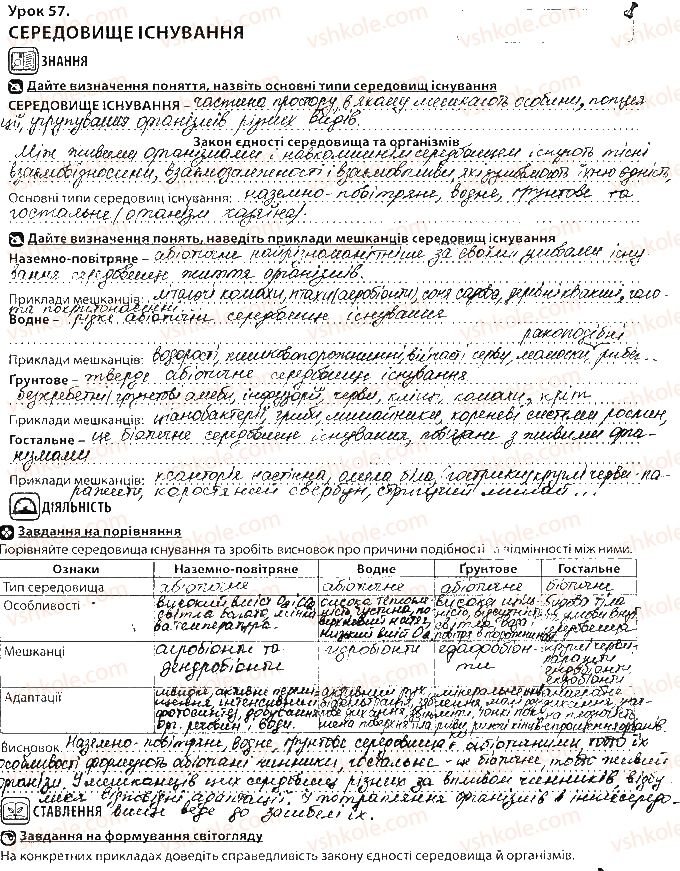 Урок 57.
СЕРЕДОВИЩЕ ІСНУВАННЯ
ЗНАННЯ
Дайте визначення поняття, назвіть основні типи середовищ існування
СЕРЕДОВИЩЕ ІСНУВАННЯ – частина простору, в якому мешкають особини, популя
ції, угрупування організмів різних видів.
Закон єдності середовища та організмів
Між живими організмами і навколишнім середовищем існують тісні
взаємовідносини, взаємозалежності і взаємовпливи, які зумовлюють їхню єдність.
Основні типи середовищ існування: наземно-повітряне, водне, ґрунтове та
гостальне (організм хазяїна).
Дайте визначення понять, наведіть приклади мешканців середовищ існування
Наземно-повітряне – абіотичне найрізноманітніше за своїми умовами існу
вання середовище життя організмів.
Приклади мешканців: літаючі комахи, птахи (аеробіонти),
та покритонасінні
Водне – рідке абіотичне середовище існування
ракоподібні
Приклади мешканців: водорості, кишковопорожнинні, війчасті черви, молюски, риби...
Ґрунтове – тверде абіотичне середовище існування
безхребетні (ґрунтові амеби, інфузорії, черви, кліщі, комахи, кріт
Приклади мешканців: ціанобактерії, гриби, лишайники, кореневі системи рослин,
Гостальне – це біотичне середовище існування, пов'язане з живими орга-
нізмами
Приклади мешканців: ксанторія настінна, омела біла, гострики (круглі черви-па-
разити), коростяний свербун, стригучий лишай...
ДІЯЛЬНІСТЬ
Завдання на порівняння
Порівняйте середовища існування та зробіть висновок про причини подібності та відмінності між ними.
Ознаки Наземно-повітряне Водне Ґрунтове Гостальне
Тип середовища абіотичне абіотичне абіотичне біотичне
Особливості високий вміст O₂, світла багато, температура. висока густина, низький вміст O₂
Мешканці аеробіонти та дендробіонти гідробіонти едафобіонти круглі черви-паразити ендобіонти
Адаптації швидке, активне переміщення, інтенсивний фотосинтез, добування орг. речовин і води. активний рух
Висновок Наземно-повітряне, водне, ґрунтове середовища є абіотичними, тобто їх
особливості формують абіотичні чинники, гостальне - це біотичне, тобто живий
організм. У мешканців цих середовищ різних за впливом чинників відбу
лися відповідні адаптації. І потрапляння організмів в інше середо-
СТАВЛЕННЯ вище веде до загибелі їх.
Завдання на формування світогляду
На конкретних прикладах доведіть справедливість закону єдності середовища й організмів.
vshkole.com